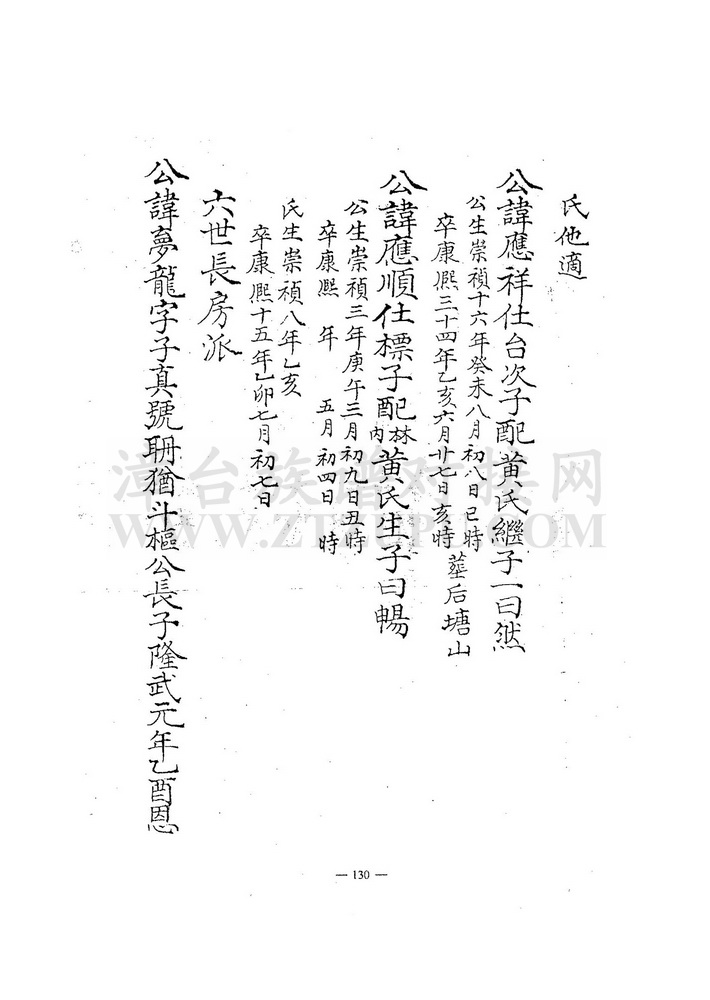 氏他適
公諱應祥仕台次子配黃氏繼子一曰然
公生崇禎十六年癸未八月初八日巳時
卒康熙三十四年乙亥六月廿七日亥時 塟后塘山
公諱應順仕標子配林内黃氏生子曰暢
公生崇禎三年庚午三月初九日丑時
卒康熙 年 五月初四日 時
氏生崇禎八年乙亥
卒康熙十五年乙卯七月初七日
六世長房派
公諱夢龍字子真號聃猶斗樞公長子隆武元年乙酉恩
漳台族譜对接网
— 130 —